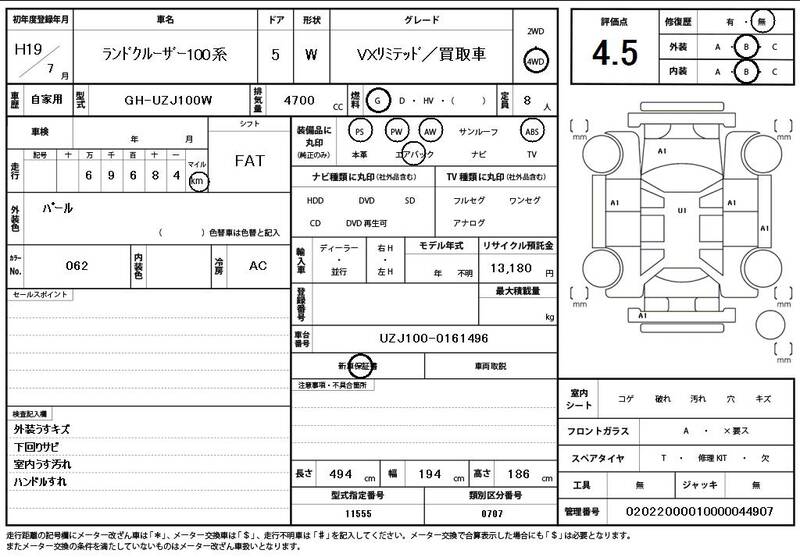 初年度登録年月 車名 ドア 形状 グレード
H19 / 7 月 ランドクルーザー100系 5 W VXリミテッド／買取車 2WD 4WD
車歴 自家用 型式 GH-UZJ100W 排気量 4700 CC 燃料 G D ・ HV ・ ( ) 定員 8 人
車検 年 月 シフト
FAT
走行 記号 十 万 千 百 十 一 マイル
6 9 6 8 4 km
外装色 パール
( )色替車は色替と記入
カラーNo. 062 内装色 冷房 AC
セールスポイント
検査記入欄
外装うすキズ
下回りサビ
室内うす汚れ
ハンドルすれ
装備品に丸印(純正のみ) PS PW AW サンルーフ ABS
本革 エアバック ナビ TV
ナビ種類に丸印(社外品含む) TV種類に丸印(社外品含む)
HDD DVD SD フルセグ ワンセグ
CD DVD再生可 アナログ
輸入車 ディーラー ・ 並行 右H ・ 左H モデル年式 リサイクル預託金
年 不明 13,180 円
登録番号 最大積載量
kg
車台番号 UZJ100-0161496
新車保証書 車両取説
注意事項・不具合箇所
長さ 494 cm 幅 194 cm 高さ 186 cm
型式指定番号 類別区分番号
11555 0707
評価点 4.5
修復歴 有 ・ 無
外装 A ・ B ・ C
内装 A ・ B ・ C
mm mm
A1
A1 U1 A1 A1
mm mm
A1
mm
室内シート コゲ 破れ 汚れ 穴 キズ
フロントガラス A ・ ×要ス
スペアタイヤ T ・ 修理KIT ・ 欠
工具 無 ジャッキ 無
管理番号 02022000010000044907
走行距離の記号欄にメーター改ざん車は「＊」、メーター交換車は「$」、走行不明車は「#」を記入してください。メーター交換で合算表示した場合にも「$」は必要となります。
またメーター交換の条件を満たしていないものはメーター改ざん車扱いとなります。